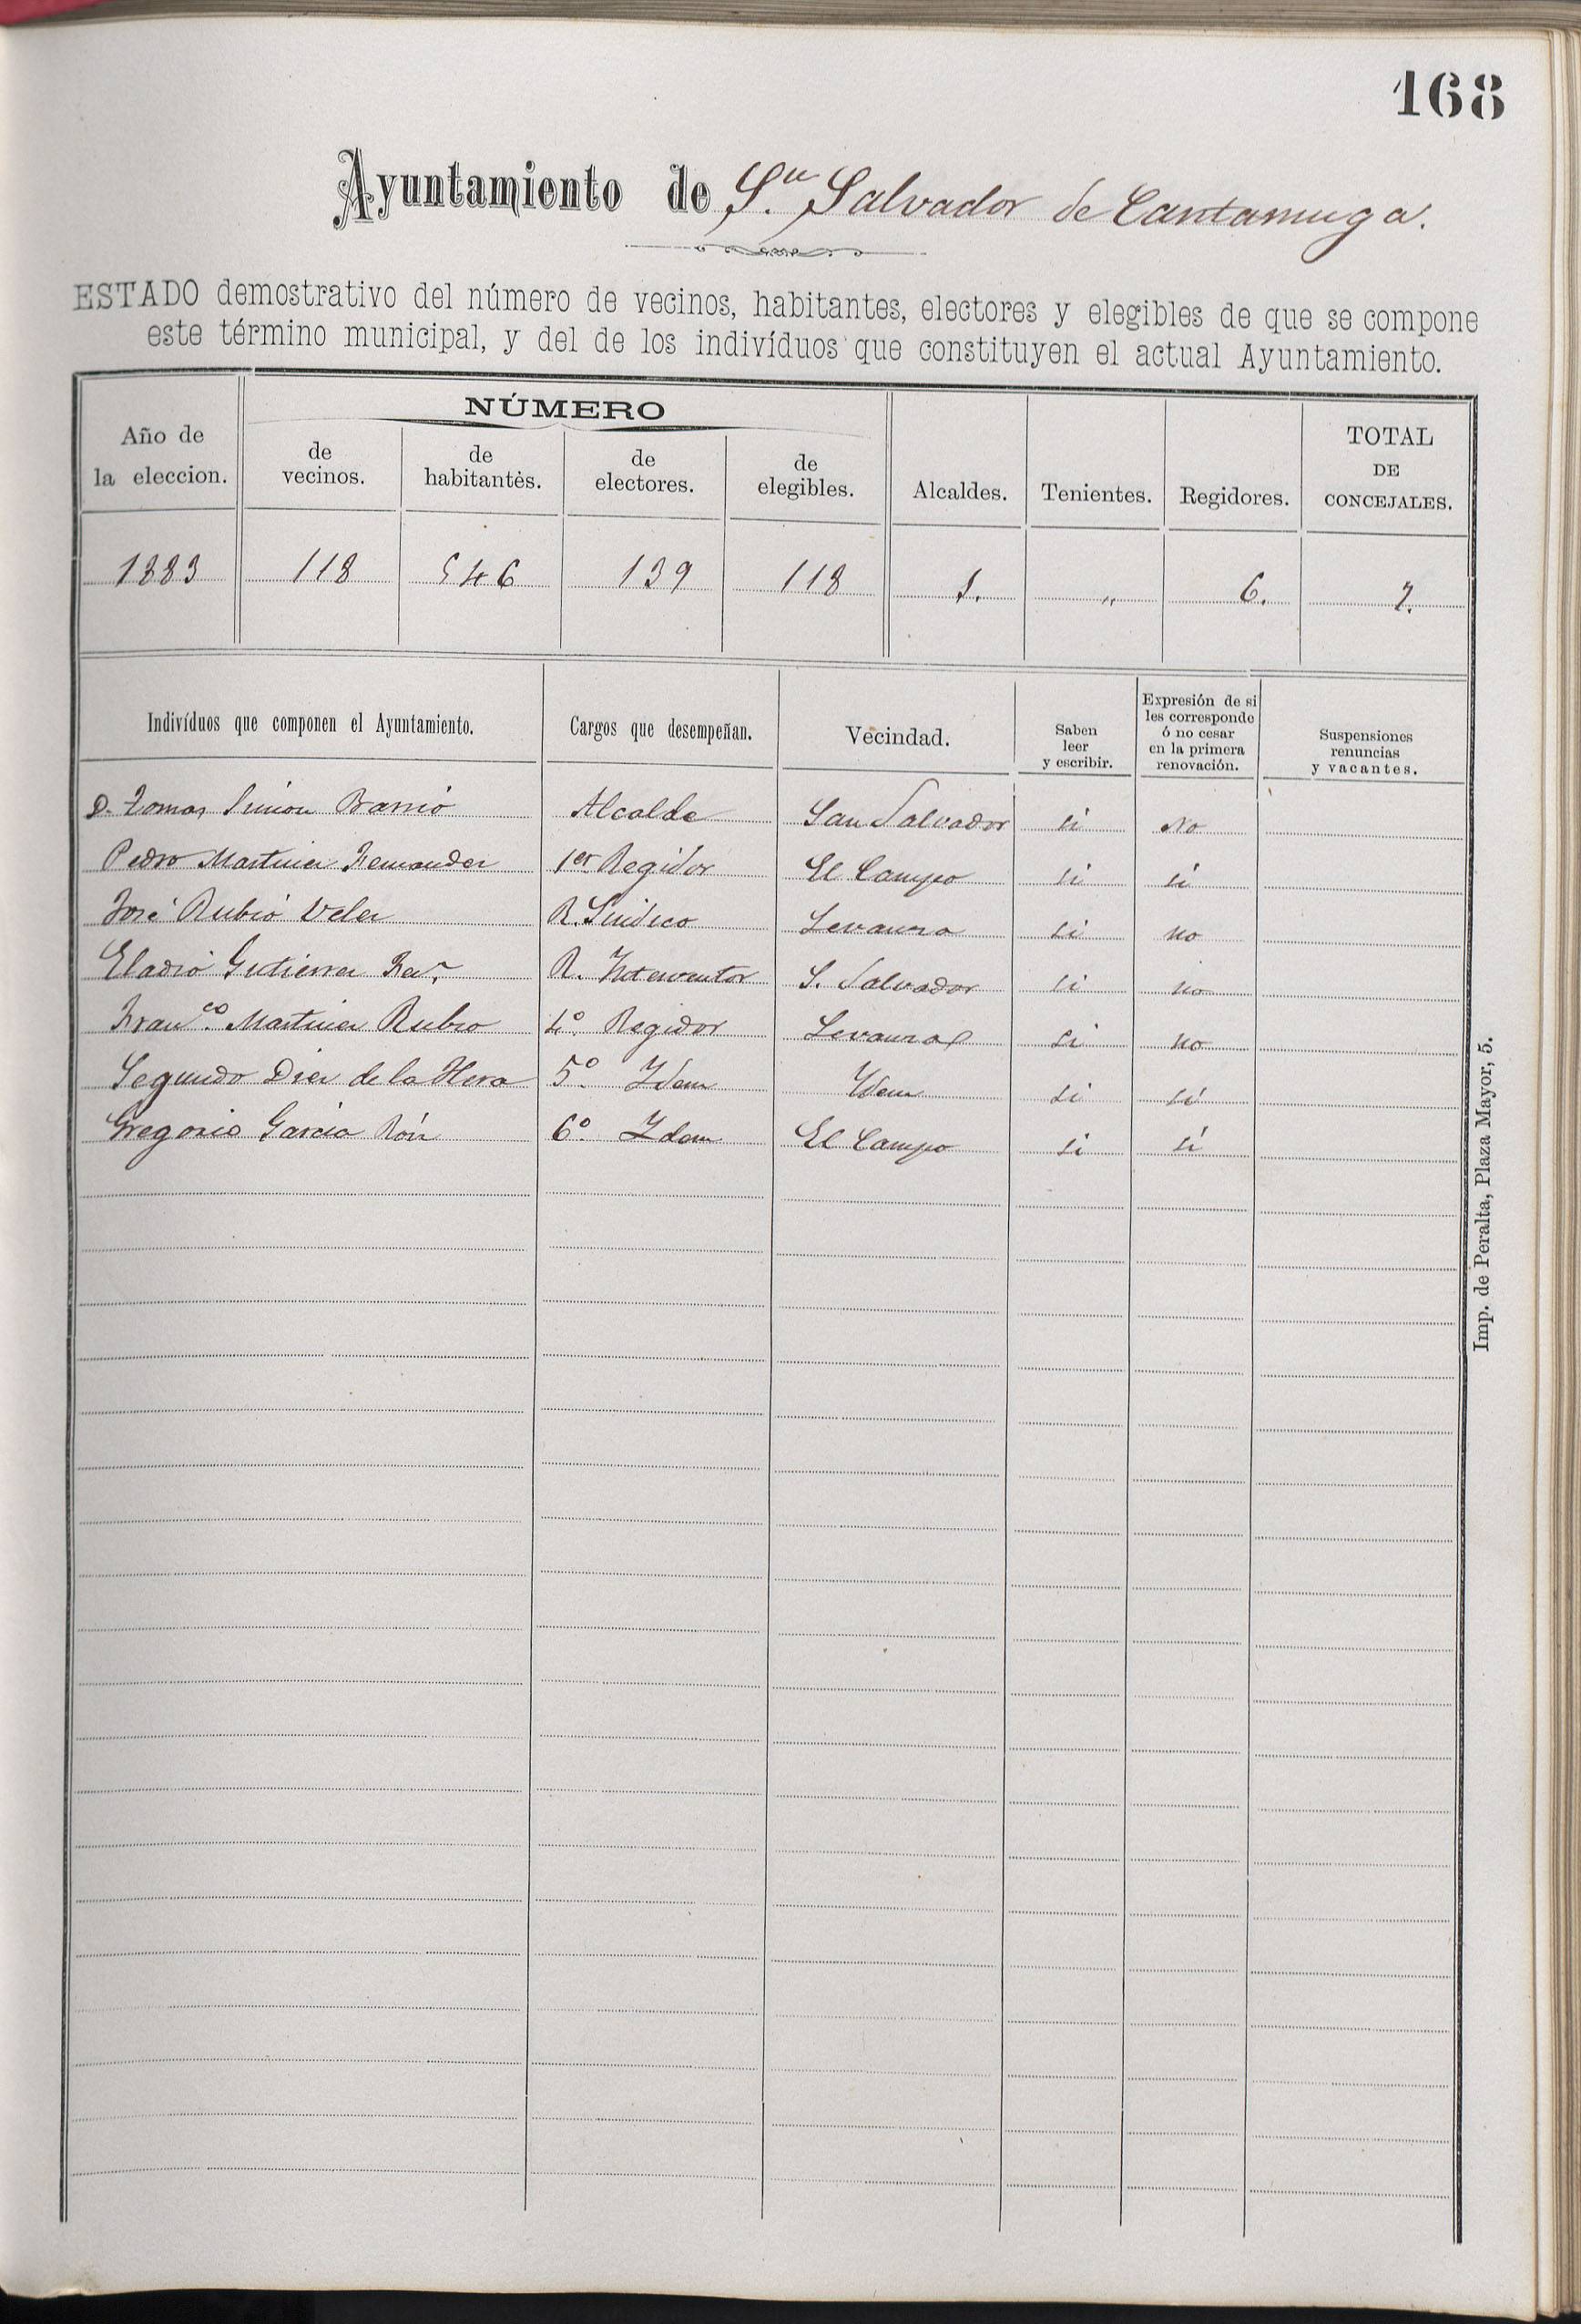 168
Ayuntamiento de Sn. Salvador de Cantamuga.
ESTADO demostrativo del número de vecinos, habitantes, electores y elegibles de que se compone
este término municipal, y del de los indivíduos que constituyen el actual Ayuntamiento.
Año de la eleccion.
NÚMERO
de vecinos.
de habitantes.
de electores.
de elegibles.
Alcaldes.
Tenientes.
Regidores.
TOTAL DE CONCEJALES.
1883 118 546 139 118 1. " 6. 7.
Indivíduos que componen el Ayuntamiento.
Cargos que desempeñan.
Vecindad.
Saben leer y escribir.
Expresión de si les corresponde ó no cesar en la primera renovación.
Suspensiones renuncias y vacantes.
D. Tomas Simon Barrio Alcalde San Salvador si No
Pedro Martinez Fernandez 1er Regidor El Campo si sí
José Rubio Velez R. Sindico Levanza si no
Eladio Gutierrez R. Interventor S. Salvador si no
Franco. Martinez Rubio 4º. Regidor Levanza si no
Segundo Diez de la Hera 5º. Idem Idem si sí
Gregorio Garcia Róiz 6º. Idem El Campo si sí
Imp. de Peralta, Plaza Mayor, 5.